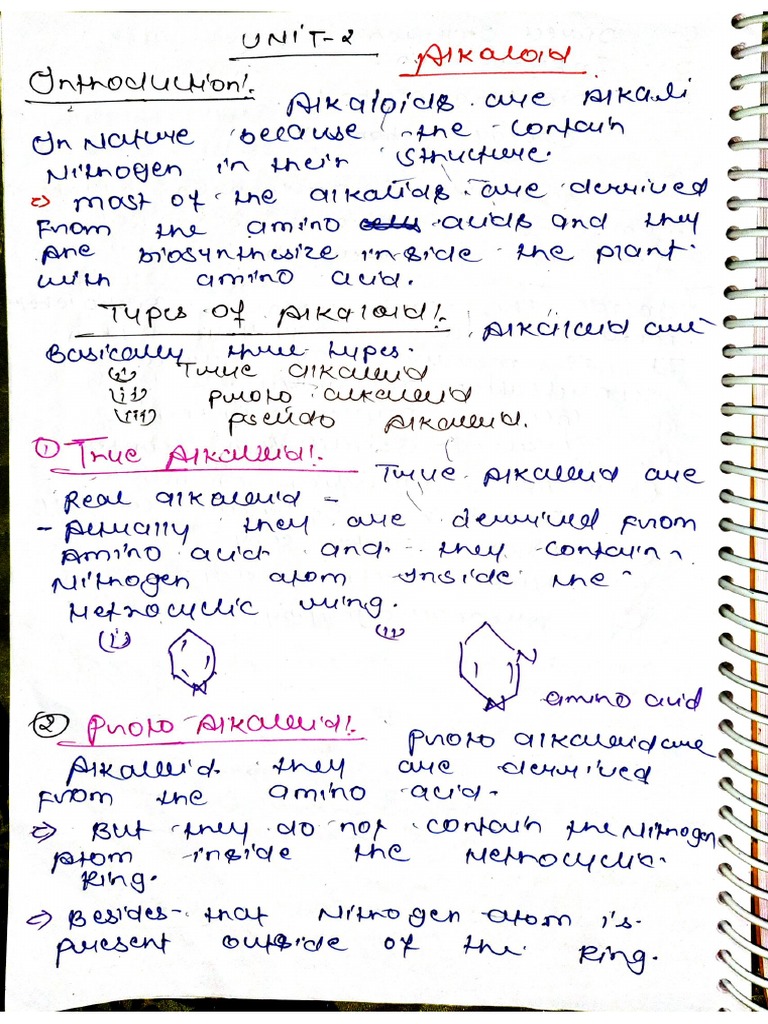 UNIT-2
Alkaloid
Introduction!.
Alkaloids are Alkali
In Nature because the contain
Nitrogen in their structure.
⇒ most of the alkaloids are derived
From the amino acids and they
Are biosynthesize inside the plant.
with amino acid.
Types of Alkaloid!.
Alkaloid are
Basically three types.
(i) True alkaloid
(ii) proto alkaloid
(iii) pseudo alkaloid.
① True Alkaloid!.
True Alkaloid are
Real alkaloid -
- Actually they are derived from
Amino acid and they contain
Nitrogen atom inside the
Hetrocyclic ring.
(i)
(ii)
N
N
N
amino acid
② Proto Alkaloid!.
Proto alkaloid are
Alkaloid they are derived
From the amino acid.
⇒ But they do not contain the Nitrogen
Atom inside the Hetrocyclic.
Ring.
⇒ Besides that Nitrogen atom is
present outside of the Ring.